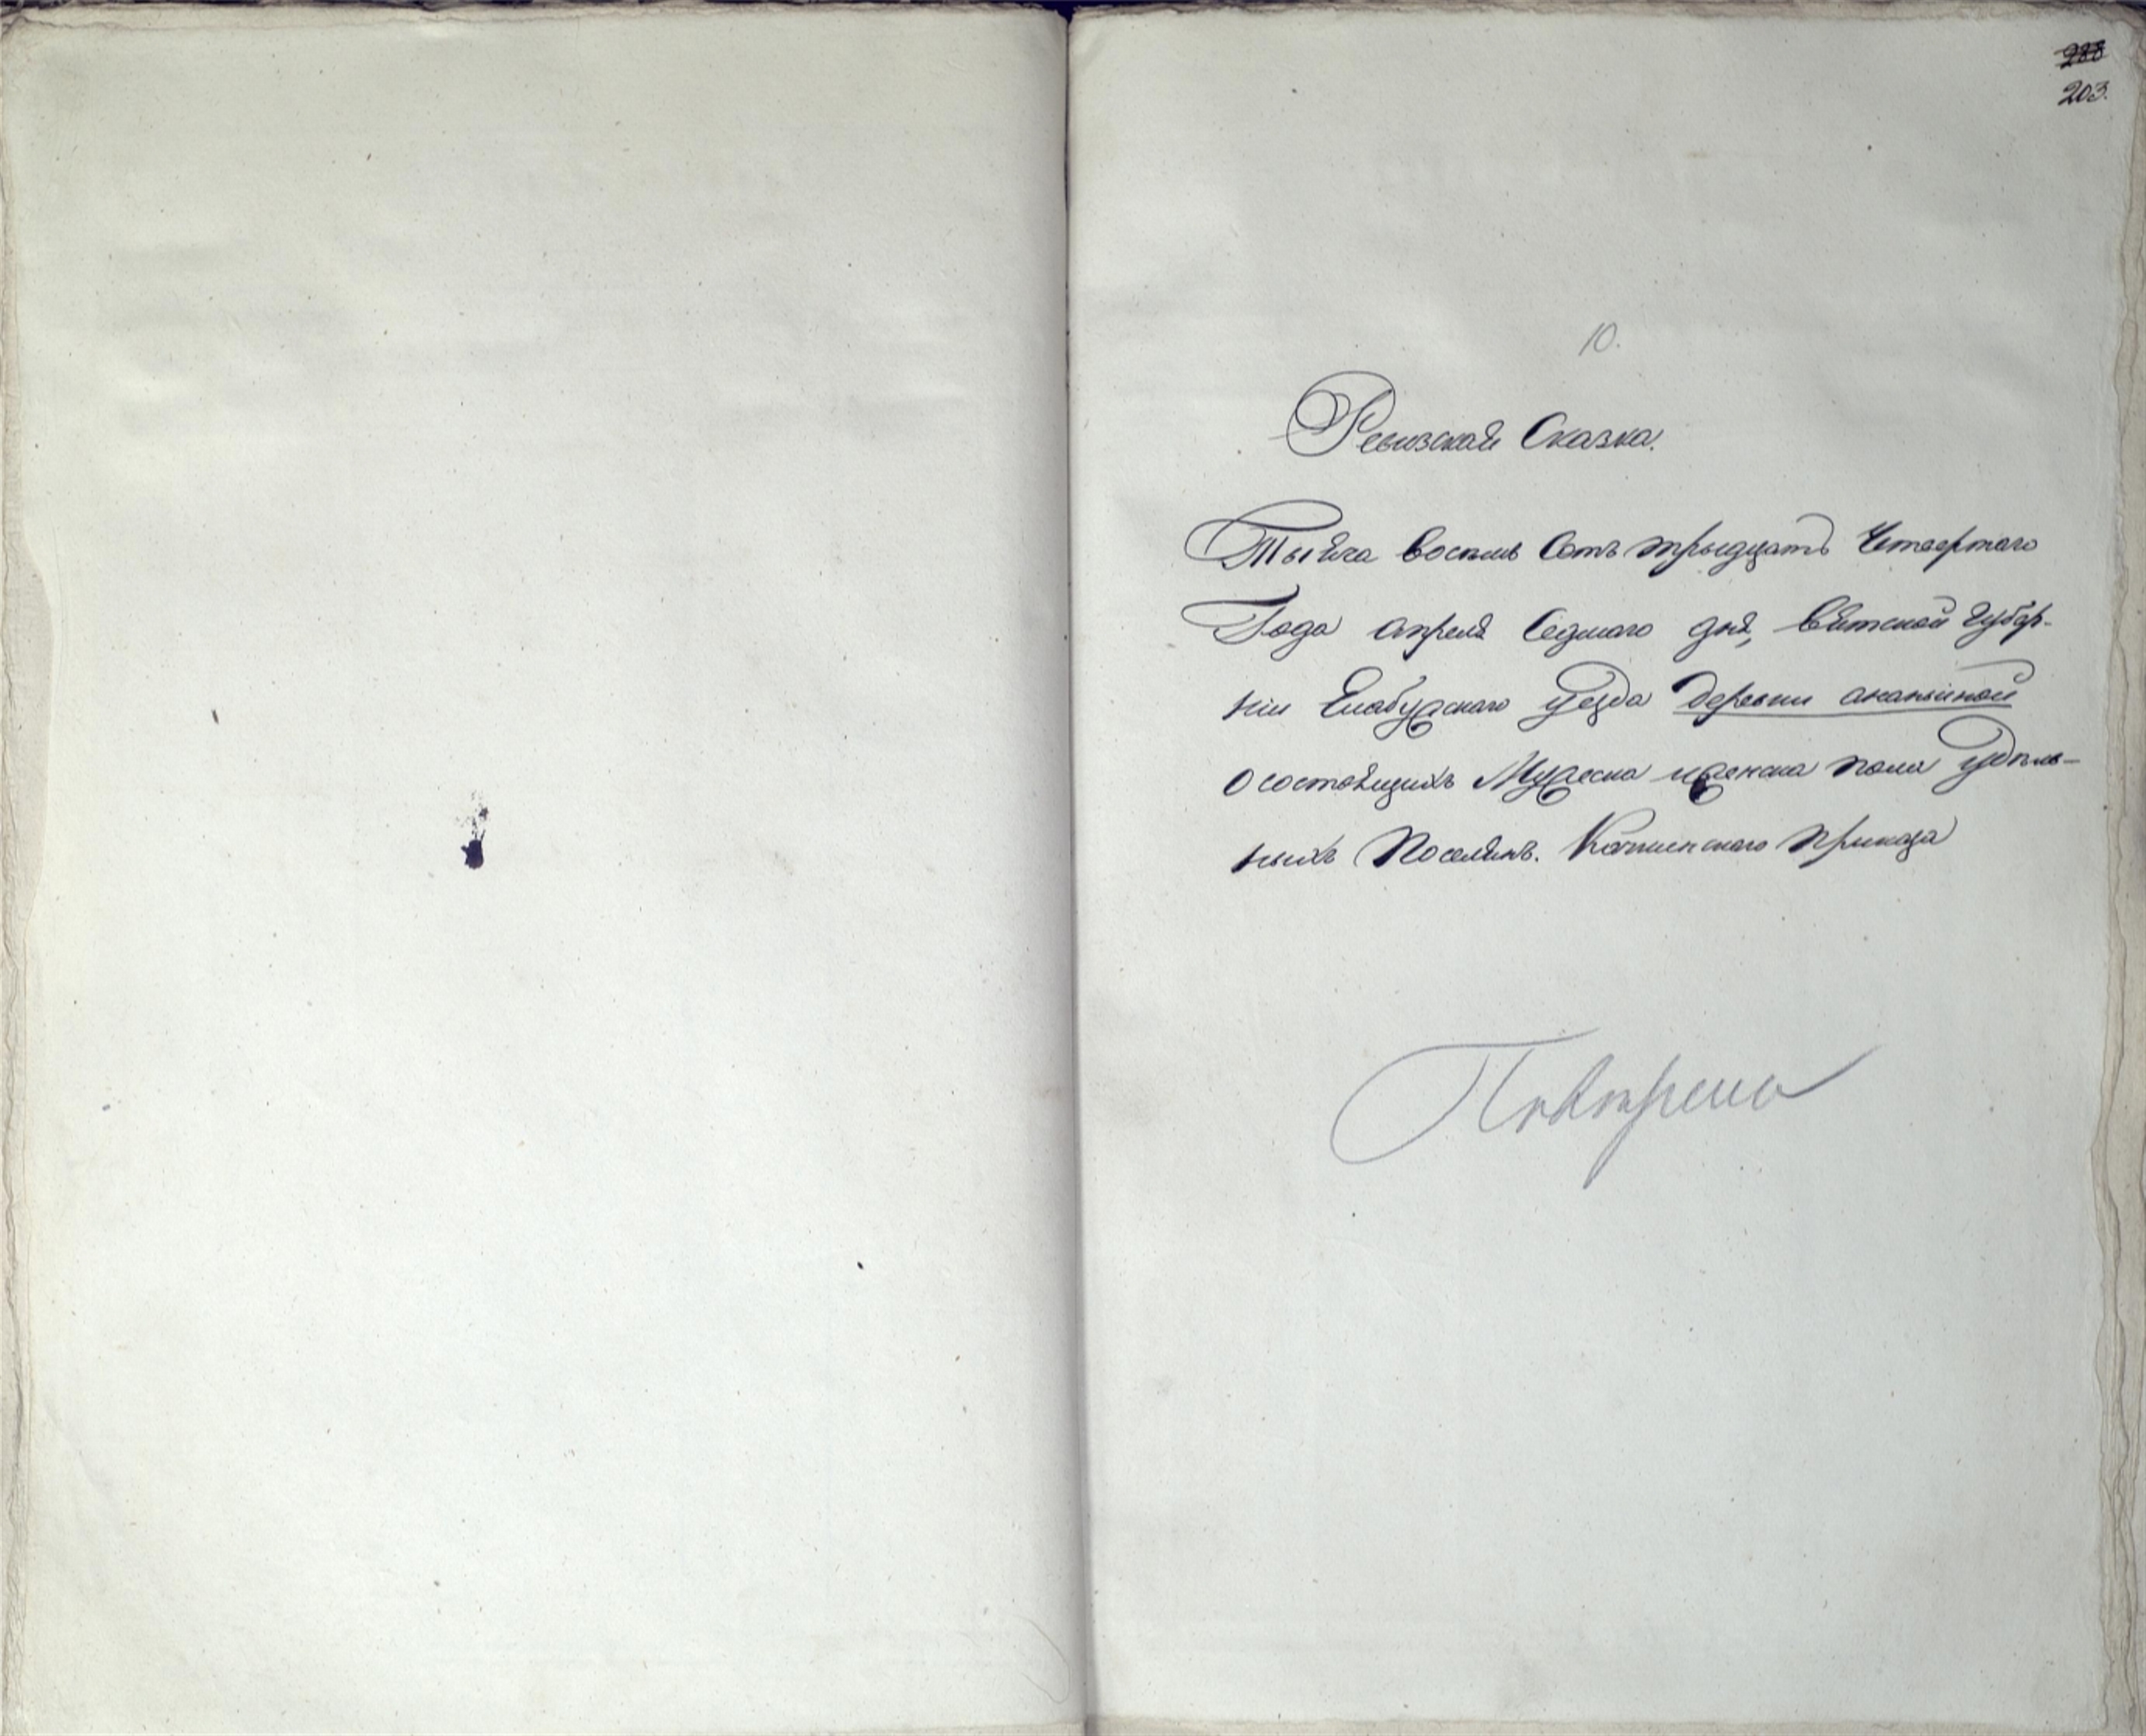 203.
10.
Ревизская Сказка.
Тысяча восемь Сотъ тридцать Четвертаго
Года апреля Седмаго дня, Вятской Губер-
ніи Елабугскаго уезда деревни ананьиной
О состоящихъ Мужеска и женска пола удель-
ныхъ Поселянъ. приказа